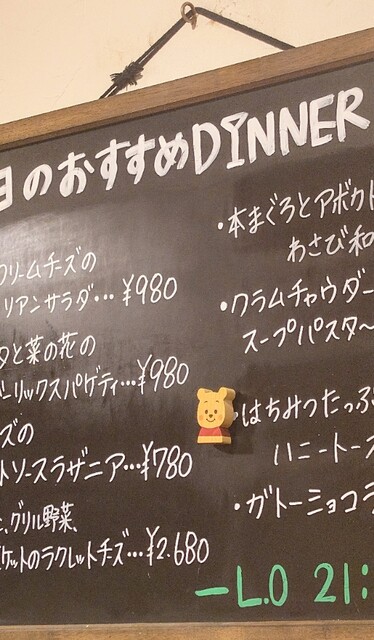 日のおすすめDINNER
クリームチーズの
リアンサラダ…¥980
タと菜の花の
ーリックスパゲティ…¥980
ーズの
トソースラザニア…¥780
と、グリル野菜、
ゲットのラクレットチーズ…¥2.680
・本まぐろとアボカド
わさび和
・クラムチャウダー
スープパスタ〜
・はちみつたっぷ
ハニートース
・ガトーショコラ
ーL.O 21: